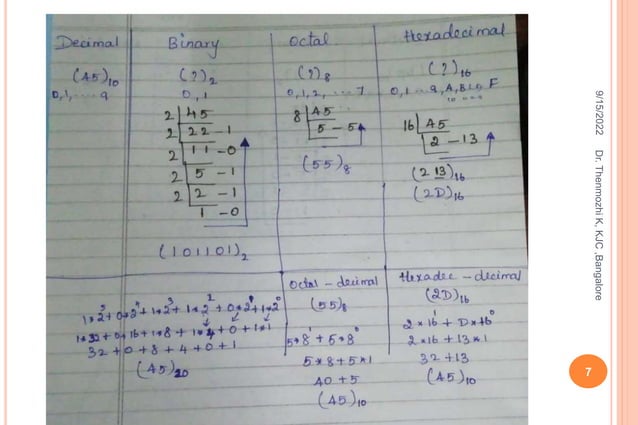 Decimal
(45)10
0,1,....9
Binary
(?)2
0,1
2 | 45
2 | 22 - 1
2 | 11 - 0
2 | 5 - 1
2 | 2 - 1
1 - 0
(101101)2
Octal
(?)8
0,1,2, ... 7
8 | 45
5 - 5
(55)8
Hexadecimal
(?)16
0,1...9,A,B,C,D,F
16 | 45
2 - 13
(2 13)16
(2D)16
1*2^5+0*2^4+1*2^3+1*2^2+0*2^1+1*2^0
1*32+0*16+1*8+1*4+0+1*1
32+0+8+4+0+1
(45)10
Octal - decimal
(55)8
5*8^1+5*8^0
5*8+5*1
40+5
(45)10
Hexadec - decimal
(2D)16
2*16^1+D*16^0
2*16+13*1
32+13
(45)10
9/15/2022
Dr. Thenmozhi K, KJC ,Bangalore
7